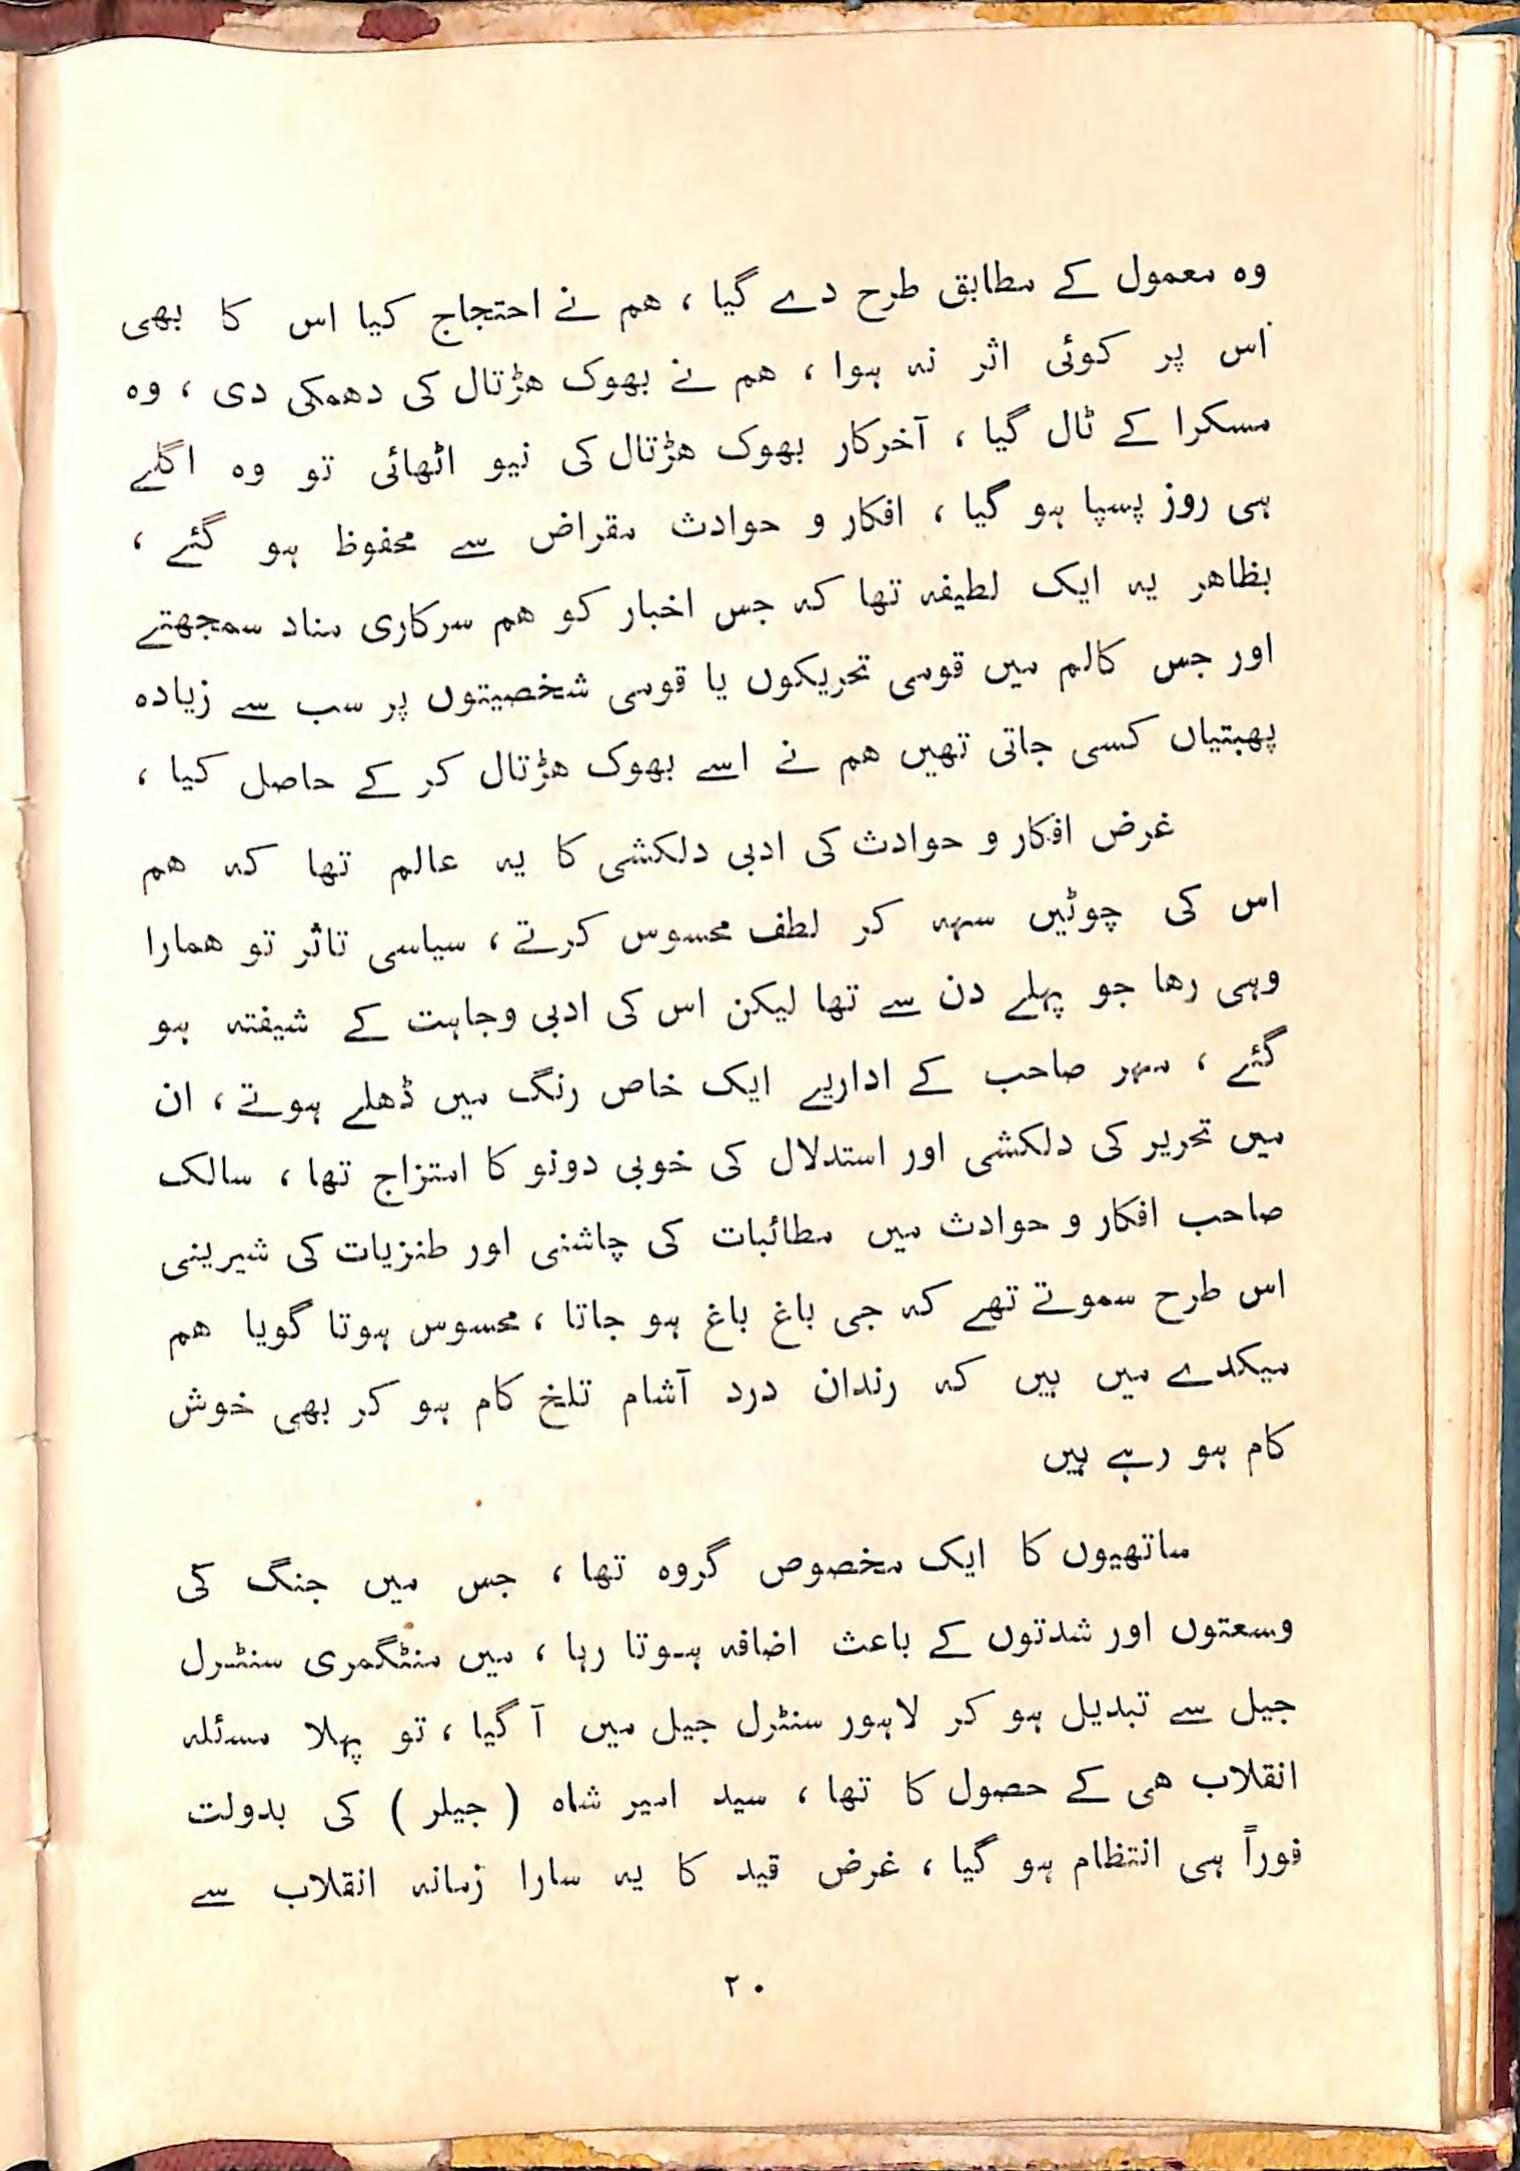 وہ معمول کے مطابق طرح دے گیا ، ھم نے احتجاج کیا اس کا بھی
اس پر کوئی اثر نہ ہوا ، ھم نے بھوک ھڑتال کی دھمکی دی ، وہ
مسکرا کے ٹال گیا ، آخرکار بھوک ھڑتال کی نیو اٹھائی تو وہ اگلے
ہی روز پسپا ہو گیا ، افکار و حوادث مقراض سے محفوظ ہو گئے ،
بظاھر یہ ایک لطیفہ تھا کہ جس اخبار کو ھم سرکاری مناد سمجھتے
اور جس کالم میں قومی تحریکوں یا قومی شخصیتوں پر سب سے زیادہ
پھبتیاں کسی جاتی تھیں ھم نے اسے بھوک ھڑتال کر کے حاصل کیا ،
غرض افکار و حوادث کی ادبی دلکشی کا یہ عالم تھا کہ ھم
اس کی چوٹیں سہہ کر لطف محسوس کرتے ، سیاسی تاثر تو ھمارا
وہی رھا جو پہلے دن سے تھا لیکن اس کی ادبی وجاہت کے شیفتہ ہو
گئے ، مہر صاحب کے اداریے ایک خاص رنگ میں ڈھلے ہوتے ، ان
میں تحریر کی دلکشی اور استدلال کی خوبی دونو کا امتزاج تھا ، سالک
صاحب افکار و حوادث میں مطائبات کی چاشنی اور طنزیات کی شیرینی
اس طرح سموتے تھے کہ جی باغ باغ ہو جاتا ، محسوس ہوتا گویا ھم
میکدے میں ہیں کہ رندان درد آشام تلخ کام ہو کر بھی خوش
کام ہو رہے ہیں
ساتھیوں کا ایک مخصوص گروہ تھا ، جس میں جنگ کی
وسعتوں اور شدتوں کے باعث اضافہ ہوتا رہا ، میں منٹگمری سنٹرل
جیل سے تبدیل ہو کر لاہور سنٹرل جیل میں آ گیا ، تو پہلا مسئلہ
انقلاب ھی کے حصول کا تھا ، سید امیر شاہ ( جیلر ) کی بدولت
فوراً ہی انتظام ہو گیا ، غرض قید کا یہ سارا زمانہ انقلاب سے
۲۰